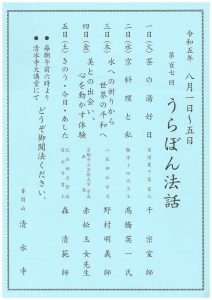 令和五年 八月一日〜五日
第百七回 うらぼん法話
一日(火) 茶の湯好日
千 宗室師
二日(水) 京料理と私
髙橋英一氏
三日(木) 水への祈りから
世界の平和へ
野村明義師
四日(金) 美との出会い、
心を動かす体験
赤松玉女先生
五日(土) きのう・今日・あした
森 清範師
●毎朝午前六時より
●清水寺大講堂にて
どうぞ御聞法ください。
音羽山 清水寺